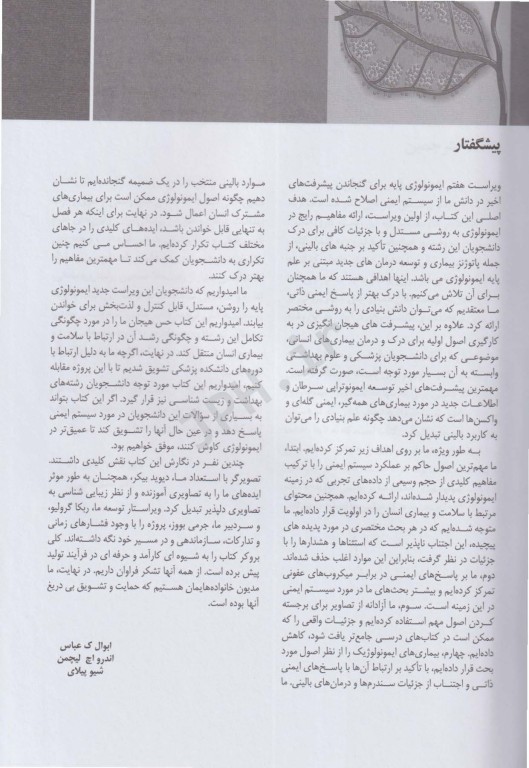 پیشگفتار
ویراست هفتم ایمونولوژی پایه برای گنجاندن پیشرفت‌های
اخیر در دانش ما از سیستم ایمنی اصلاح شده است. هدف
اصلی این کتاب، از اولین ویراست، ارائه مفاهیم رایج در
ایمونولوژی به روشی مستدل و با جزئیات کافی برای درک
دانشجویان این رشته و همچنین تأکید بر جنبه های بالینی، از
جمله پاتوژنز بیماری و توسعه درمان های جدید مبتنی بر علم
پایه ایمونولوژی می باشد. اینها اهدافی هستند که ما همچنان
برای آن تلاش می‌کنیم. با درک بهتر از پاسخ ایمنی ذاتی،
ما معتقدیم که می‌توان دانش بنیادی را به روشی مختصر
ارائه کرد. علاوه بر این، پیشرفت های هیجان انگیزی در به
کارگیری اصول اولیه برای درک و درمان بیماری های انسانی،
موضوعی که برای دانشجویان پزشکی و علوم بهداشتی
وابسته به آن بسیار مورد توجه است، صورت گرفته است.
مهمترین پیشرفت‌های اخیر توسعه ایمونوتراپی سرطان و
اطلاعات جدید در مورد بیماری‌های همه‌گیر، ایمنی گله‌ای و
واکسن‌ها است که نشان می‌دهد چگونه علم بنیادی را می‌توان
به کاربرد بالینی تبدیل کرد.
به طور ویژه، ما بر روی اهداف زیر تمرکز کرده‌ایم. ابتدا،
ما مهم‌ترین اصول حاکم بر عملکرد سیستم ایمنی را با ترکیب
مفاهیم کلیدی از حجم وسیعی از داده‌های تجربی که در زمینه
ایمونولوژی پدیدار شده‌اند، ارائه کرده‌ایم. همچنین محتوای
مرتبط با سلامت و بیماری انسان را در اولویت قرار داده‌ایم. ما
متوجه شده‌ایم که در هر بحث مختصری در مورد پدیده های
پیچیده، این اجتناب ناپذیر است که استثناها و هشدارها را با
جزئیات در نظر گرفت، بنابراین این موارد اغلب حذف شده‌اند.
دوم، ما بر پاسخ‌های ایمنی در برابر میکروب‌های عفونی
تمرکز کرده‌ایم و بیشتر بحث‌های ما در مورد سیستم ایمنی
در این زمینه است. سوم، ما آزادانه از تصاویر برای برجسته
کردن اصول مهم استفاده کرده‌ایم و جزئیات واقعی را که
ممکن است در کتاب‌های درسی جامع‌تر یافت شود، کاهش
داده‌ایم. چهارم، بیماری‌های ایمونولوژیک را از نظر اصول مورد
بحث قرار داده‌ایم، با تأکید بر ارتباط آن‌ها با پاسخ‌های ایمنی
ذاتی و اجتناب از جزئیات سندرم‌ها و درمان‌های بالینی. ما
موارد بالینی منتخب را در یک ضمیمه گنجانده‌ایم تا نشان
دهیم چگونه اصول ایمونولوژی ممکن است برای بیماری‌های
مشترک انسان اعمال شود. در نهایت برای اینکه هر فصل
به تنهایی قابل خواندن باشد، ایده‌های کلیدی را در جاهای
مختلف کتاب تکرار کرده‌ایم. ما احساس می کنیم چنین
تکراری به دانشجویان کمک می‌کند تا مهمترین مفاهیم را
بهتر درک کنند.
ما امیدواریم که دانشجویان این ویراست جدید ایمونولوژی
پایه را روشن، مستدل، قابل کنترل و لذت‌بخش برای خواندن
بیابند. امیدواریم این کتاب حس هیجان ما را در مورد چگونگی
تکامل این رشته و چگونگی رشد آن در ارتباط با سلامت و
بیماری انسان منتقل کند. در نهایت، اگرچه ما به دلیل ارتباط با
دوره‌های دانشکده پزشکی تشویق شدیم تا با این پروژه مقابله
کنیم، امیدواریم این کتاب مورد توجه دانشجویان رشته‌های
بهداشت و زیست شناسی نیز قرار گیرد. اگر این کتاب بتواند
به بسیاری از سؤالات این دانشجویان در مورد سیستم ایمنی
پاسخ دهد و در عین حال آنها را تشویق کند تا عمیق‌تر در
ایمونولوژی کاوش کنند، موفق خواهیم بود.
چندین نفر در نگارش این کتاب نقش کلیدی داشتند.
تصویرگر با استعداد ما، دیوید بیکر، همچنان به طور موثر
ایده‌های ما را به تصاویری آموزنده و از نظر زیبایی شناسی به
تصاویری دلپذیر تبدیل کرد. ویراستار توسعه ما، ربکا گرولیو،
و سردبیر ما، جرمی بووز، پروژه را با وجود فشارهای زمانی
و تدارکات، سازماندهی و در مسیر خود نگه داشته‌اند. کلی
بروکر کتاب را به شیوه ای کارآمد و حرفه ای در فرآیند تولید
پیش برده است. از همه آنها تشکر فراوان داریم. در نهایت، ما
مدیون خانواده‌هایمان هستیم که حمایت و تشویق بی دریغ
آنها بوده است.
ابوال ک عباس
اندرو اچ لیچمن
شیو پیلای